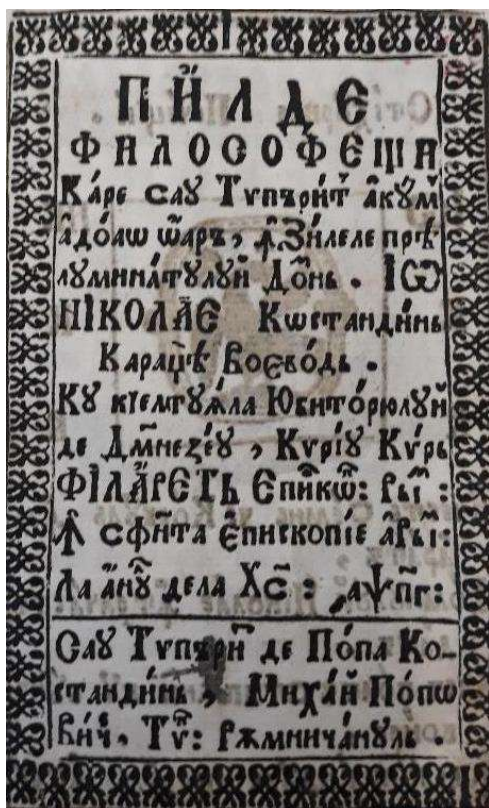 ПИ́ЛДЕ
ФИЛОСОФЕЩИ
Ка́ре саꙋ Тѵпъри́т а̂кꙋм
а̂до́аѡ ѡ́аръ, ꙟ҆ Зи́леле прѣ
лꙋмина́тꙋлꙋй До́нь . ІѠ
НІКОЛА́Е Кѡстанди́нь
Караџѣ̀ Воєво́дь .
Кꙋ кїелтꙋѧ́ла Юбито́рюлꙋй
де Дм҃незе́ꙋ , Кѵ́рїꙋ Кѵ́рь
ФІЛА́РЕТЬ Епи̂кѡ̂: Ры̂ :
Ꙟ҆ сфи́нта Е҆пископїе а̂Ры̂:
Ла а́нꙋ̂ дела Хс҃ : ҂аѱ҃пг:
Саꙋ Тѵпъри̂ де По́па Ко-
станди́нь , Миха́й По́пѡ
ви́ч , Тѵ̂: Рѫмнича́нꙋль .